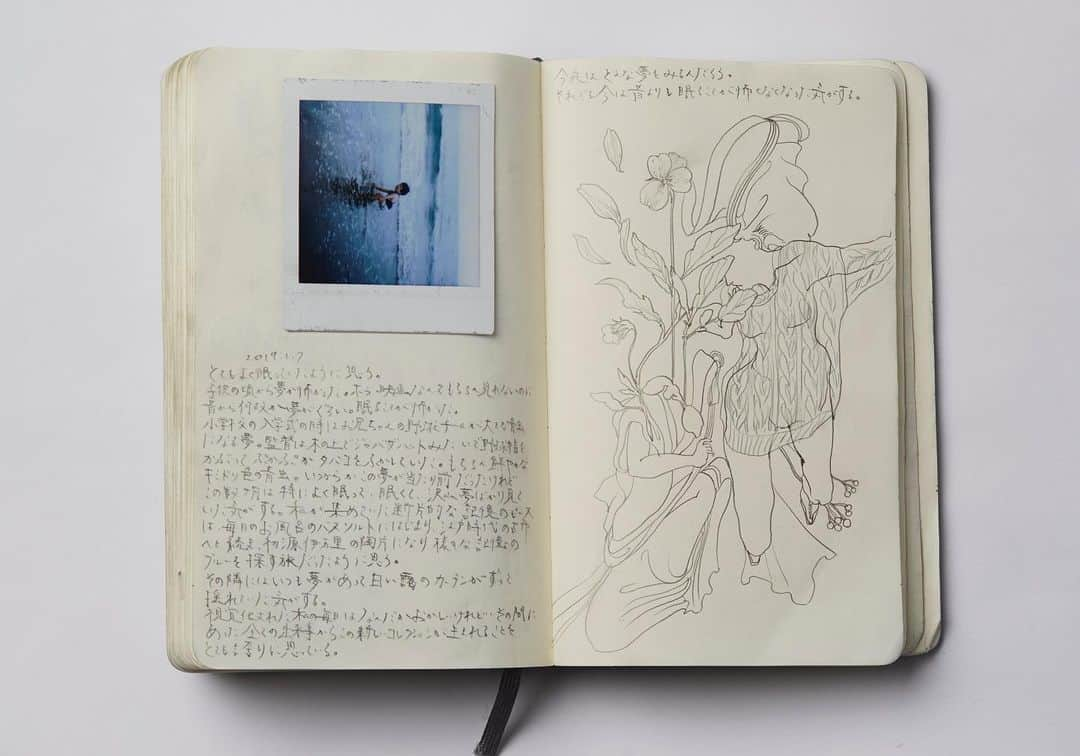 2019.1.7
とてもよく眠っていたように思う。
子供の頃から夢が怖かった。ホラー映画なんてもちろん見れないのに
昔から何故か夢がくらい。眠ることが怖かった。
小学校の入学式の時はお兄ちゃんの野球チームが大きな青虫
になる夢。監督は木の上でジャバザハットみたいで野球帽を
かぶって ぷかぷかタバコをふかしていた。もちろん鮮やかな
きみどり色の青虫。いつからかこの夢が当たり前だったけれど
この数ヶ月は特によく眠って、眠くて、沢山夢ばかり見て
いた気がする。私が集めていた断片的な記憶のピース
は毎日のお風呂のバスソルトにはじまり、江戸時代の古布
へと続き、初源伊万里の陶片になり 様々な記憶の
ブルーを探す旅だったように思う。
その隣にはいつも夢があって白い霧のカーテンがずっと
揺れていた気がする。
視覚化された私の毎日はなんだかおかしいけれど、その間に
あった全ての出来事からこの新しいコレクションが生まれることを
とても幸りに思っている。
今夜はどんな夢をみるんだろう。
それでも今は昔よりも眠ることが怖くなくなった気がする。